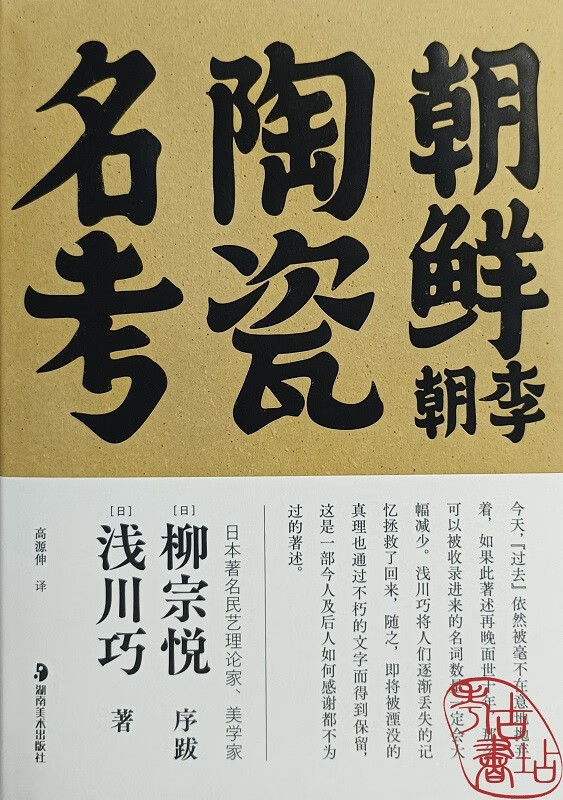 朝鲜
李朝
陶瓷
名考
今天，『过去』依然被毫不在意地抛弃
着，如果此著述再晚面世十年，那
可以被收录进来的名词数量一定会大
幅减少。浅川巧将人们逐渐丢失的记
忆拯救了回来，随之，即将被湮没的
真理也通过不朽的文字而得到保留，
这是一部今人及后人如何感谢都不为
过的著述。
日本著名民艺理论家、美学家
［日］柳宗悦 序跋
［日］浅川巧 著
高源伸 译
湖南美术出版社
考古書站